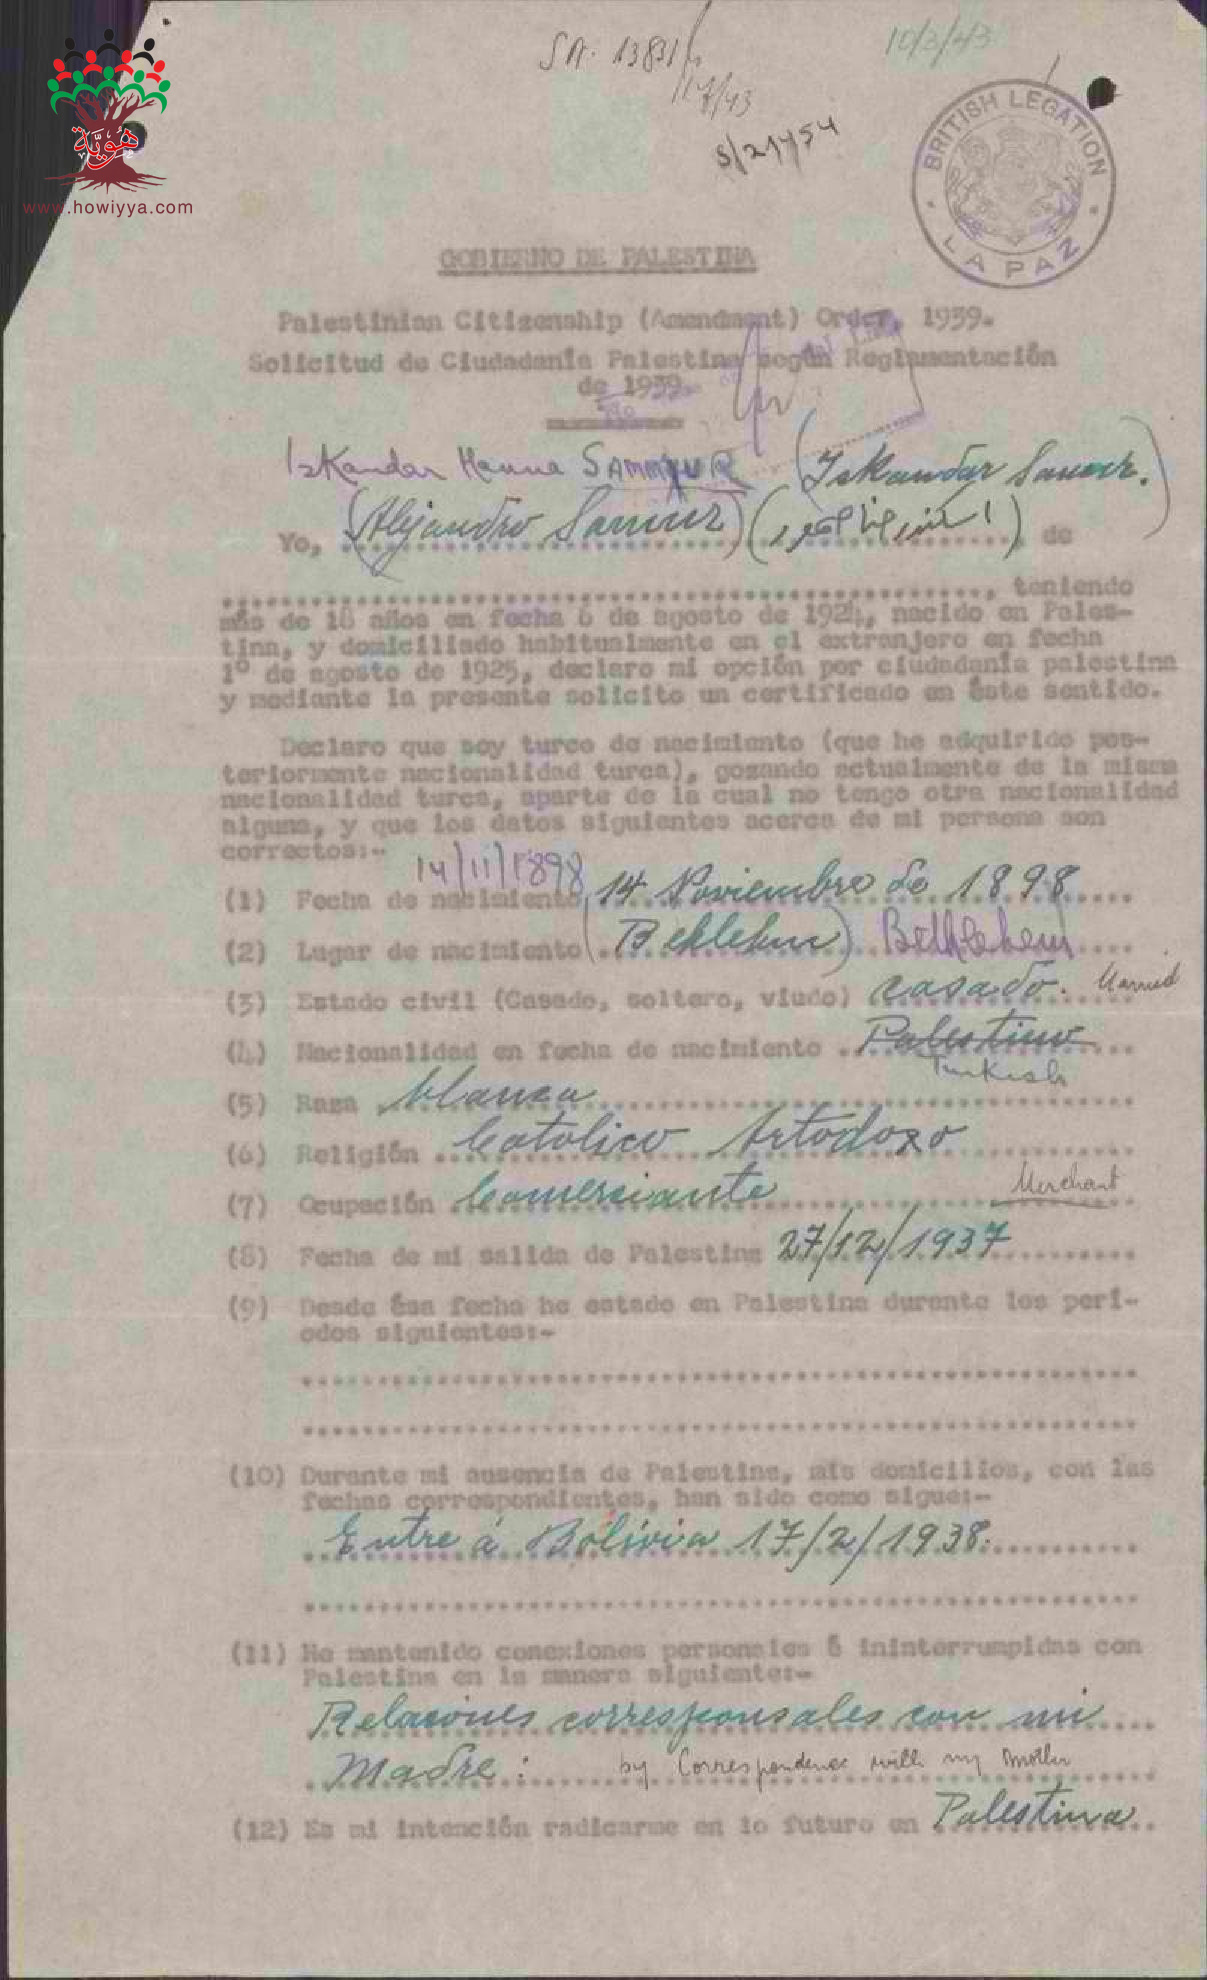 هُوِيَّة
www.howiyya.com
10/3/43
S/21454
BRITISH LEGATION
LA PAZ
GOBIERNO DE PALESTINA
Palestinian Citizenship (Amendment) Order, 1939.
Solicitud de Ciudadanía Palestina según Reglamentación
de 1939.
Iskandar Hanna SAMMUR (Iskandar Samur.)
Yo, (Alejandro Samur) de
, teniendo
más de 18 años en fecha 6 de agosto de 1924, nacido en Pales-
tina, y domiciliado habitualmente en el extranjero en fecha
1º de agosto de 1925, declaro mi opción por ciudadanía palestina
y mediante la presente solicito un certificado en éste sentido.
Declaro que soy turco de nacimiento (que he adquirido pos-
teriormente nacionalidad turca), gozando actualmente de la misma
nacionalidad turca, aparte de la cual no tengo otra nacionalidad
alguna, y que los datos siguientes acerca de mi persona son
correctos:-
14/11/1898
(1) Fecha de nacimiento 14 Noviembre de 1898
(2) Lugar de nacimiento (Behlehm) Bethlehem
(3) Estado civil (Casado, soltero, viudo) casado. Married
(4) Nacionalidad en fecha de nacimiento Palestino
Turkish
(5) Raza blanca
(6) Religión Catolico Artodoxo
(7) Ocupación Comerciante Merchant
(8) Fecha de mi salida de Palestina 27/12/1937
(9) Desde ésa fecha he estado en Palestina durante los perí-
odos siguientes:-
(10) Durante mi ausencia de Palestina, mis domicilios, con las
fechas correspondientes, han sido como sigue:-
Entre á Bolivia 17/2/1938.
(11) He mantenido conexiones personales é ininterrumpidas con
Palestina en la manera siguiente:-
Relaciones corresponsales con mi
Madre : by Correspondence with my Mother
(12) Es mi intención radicarme en lo futuro en Palestina